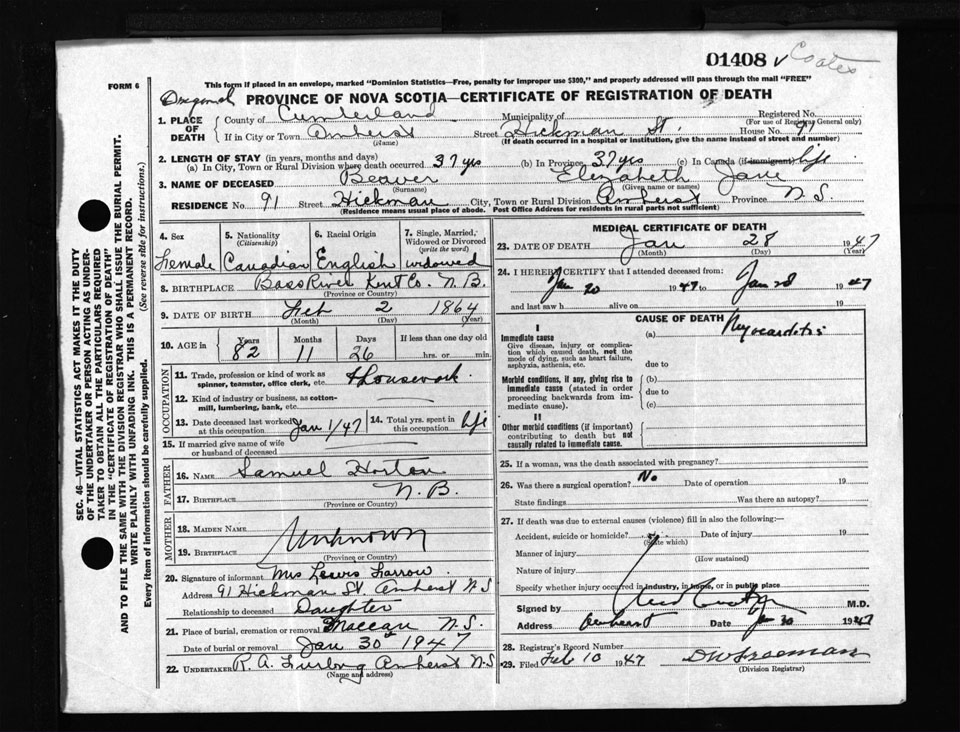 01408 v Coates
FORM 6
This form if placed in an envelope, marked "Dominion Statistics—Free, penalty for improper use $300," and properly addressed will pass through the mail "FREE"
PROVINCE OF NOVA SCOTIA—CERTIFICATE OF REGISTRATION OF DEATH
1. PLACE OF DEATH
County of Cumberland Municipality of Registered No.
(For use of Registrar General only)
If in City or Town Amherst Street Hickman St. House No. 91
(Name) (If death occurred in a hospital or institution, give the name instead of street and number)
2. LENGTH OF STAY (in years, months and days)
(a) In City, Town or Rural Division where death occurred 37 yrs (b) In Province 37 yrs (c) In Canada (if immigrant) life
3. NAME OF DECEASED Beaver Elizabeth Jane
(Surname) (Given name or names)
RESIDENCE No. 91 Street Hickman City, Town or Rural Division Amherst Province N.S.
(Residence means usual place of abode. Post Office Address for residents in rural parts not sufficient)
4. Sex
Female
5. Nationality
(Citizenship)
Canadian
6. Racial Origin
English
7. Single, Married, Widowed or Divorced
(write the word)
widowed
8. BIRTHPLACE Bass River Kent Co. N.B.
(Province or Country)
9. DATE OF BIRTH Feb 2 1864
(Month) (Day) (Year)
10. AGE in
Years Months Days If less than one day old
82 11 26 hrs. or min.
OCCUPATION
11. Trade, profession or kind of work as spinner, teamster, office clerk, etc. Housework
12. Kind of industry or business, as cotton-mill, lumbering, bank, etc.
13. Date deceased last worked at this occupation Jan 1/47
14. Total yrs. spent in this occupation life
15. If married give name of wife or husband of deceased
FATHER
16. Name Samuel Horton
17. Birthplace N.B.
(Province or Country)
MOTHER
18. MAIDEN NAME
19. BIRTHPLACE
Unknown
(Province or Country)
20. Signature of informant Mrs Lewis Farrow
Address 91 Hickman St. Amherst N S
Relationship to deceased Daughter
21. Place of burial, cremation or removal Maccan N.S.
Date of burial or removal Jan 30th 1947
22. UNDERTAKER R. A. Furlong Amherst N.S
(Name and address)
MEDICAL CERTIFICATE OF DEATH
23. DATE OF DEATH Jan 28 1947
(Month) (Day) (Year)
24. I HEREBY CERTIFY that I attended deceased from:
Jan 20 1947 to Jan 28 1947
and last saw h alive on 19
CAUSE OF DEATH
I
Immediate cause
Give disease, injury or complication which caused death, not the mode of dying, such as heart failure, asphyxia, asthenia, etc.
(a) Myocarditis
due to
Morbid conditions, if any, giving rise to immediate cause (stated in order proceeding backwards from immediate cause).
(b)
due to
(c)
II
Other morbid conditions (if important) contributing to death but not causally related to immediate cause.
25. If a woman, was the death associated with pregnancy?
26. Was there a surgical operation? No Date of operation 19
State findings Was there an autopsy?
27. If death was due to external causes (violence) fill in also the following:—
Accident, suicide or homicide? Date of injury 19
(State which)
Manner of injury
(How sustained)
Nature of injury
Specify whether injury occurred in industry, in home, or in public place
Signed by M.D.
Address Amherst Date Jan 30 1947
28. Registrar's Record Number
29. Filed Feb 10 1947
(Division Registrar)
SEC. 46—VITAL STATISTICS ACT MAKES IT THE DUTY
OF THE UNDERTAKER OR PERSON ACTING AS UNDERTAKER
TO OBTAIN ALL THE PARTICULARS REQUIRED
IN THE "CERTIFICATE OF REGISTRATION OF DEATH"
AND TO FILE THE SAME WITH THE DIVISION REGISTRAR WHO SHALL ISSUE THE BURIAL PERMIT.
WRITE PLAINLY WITH UNFADING INK. THIS IS A PERMANENT RECORD.
Every item of information should be carefully supplied. (See reverse side for instructions.)